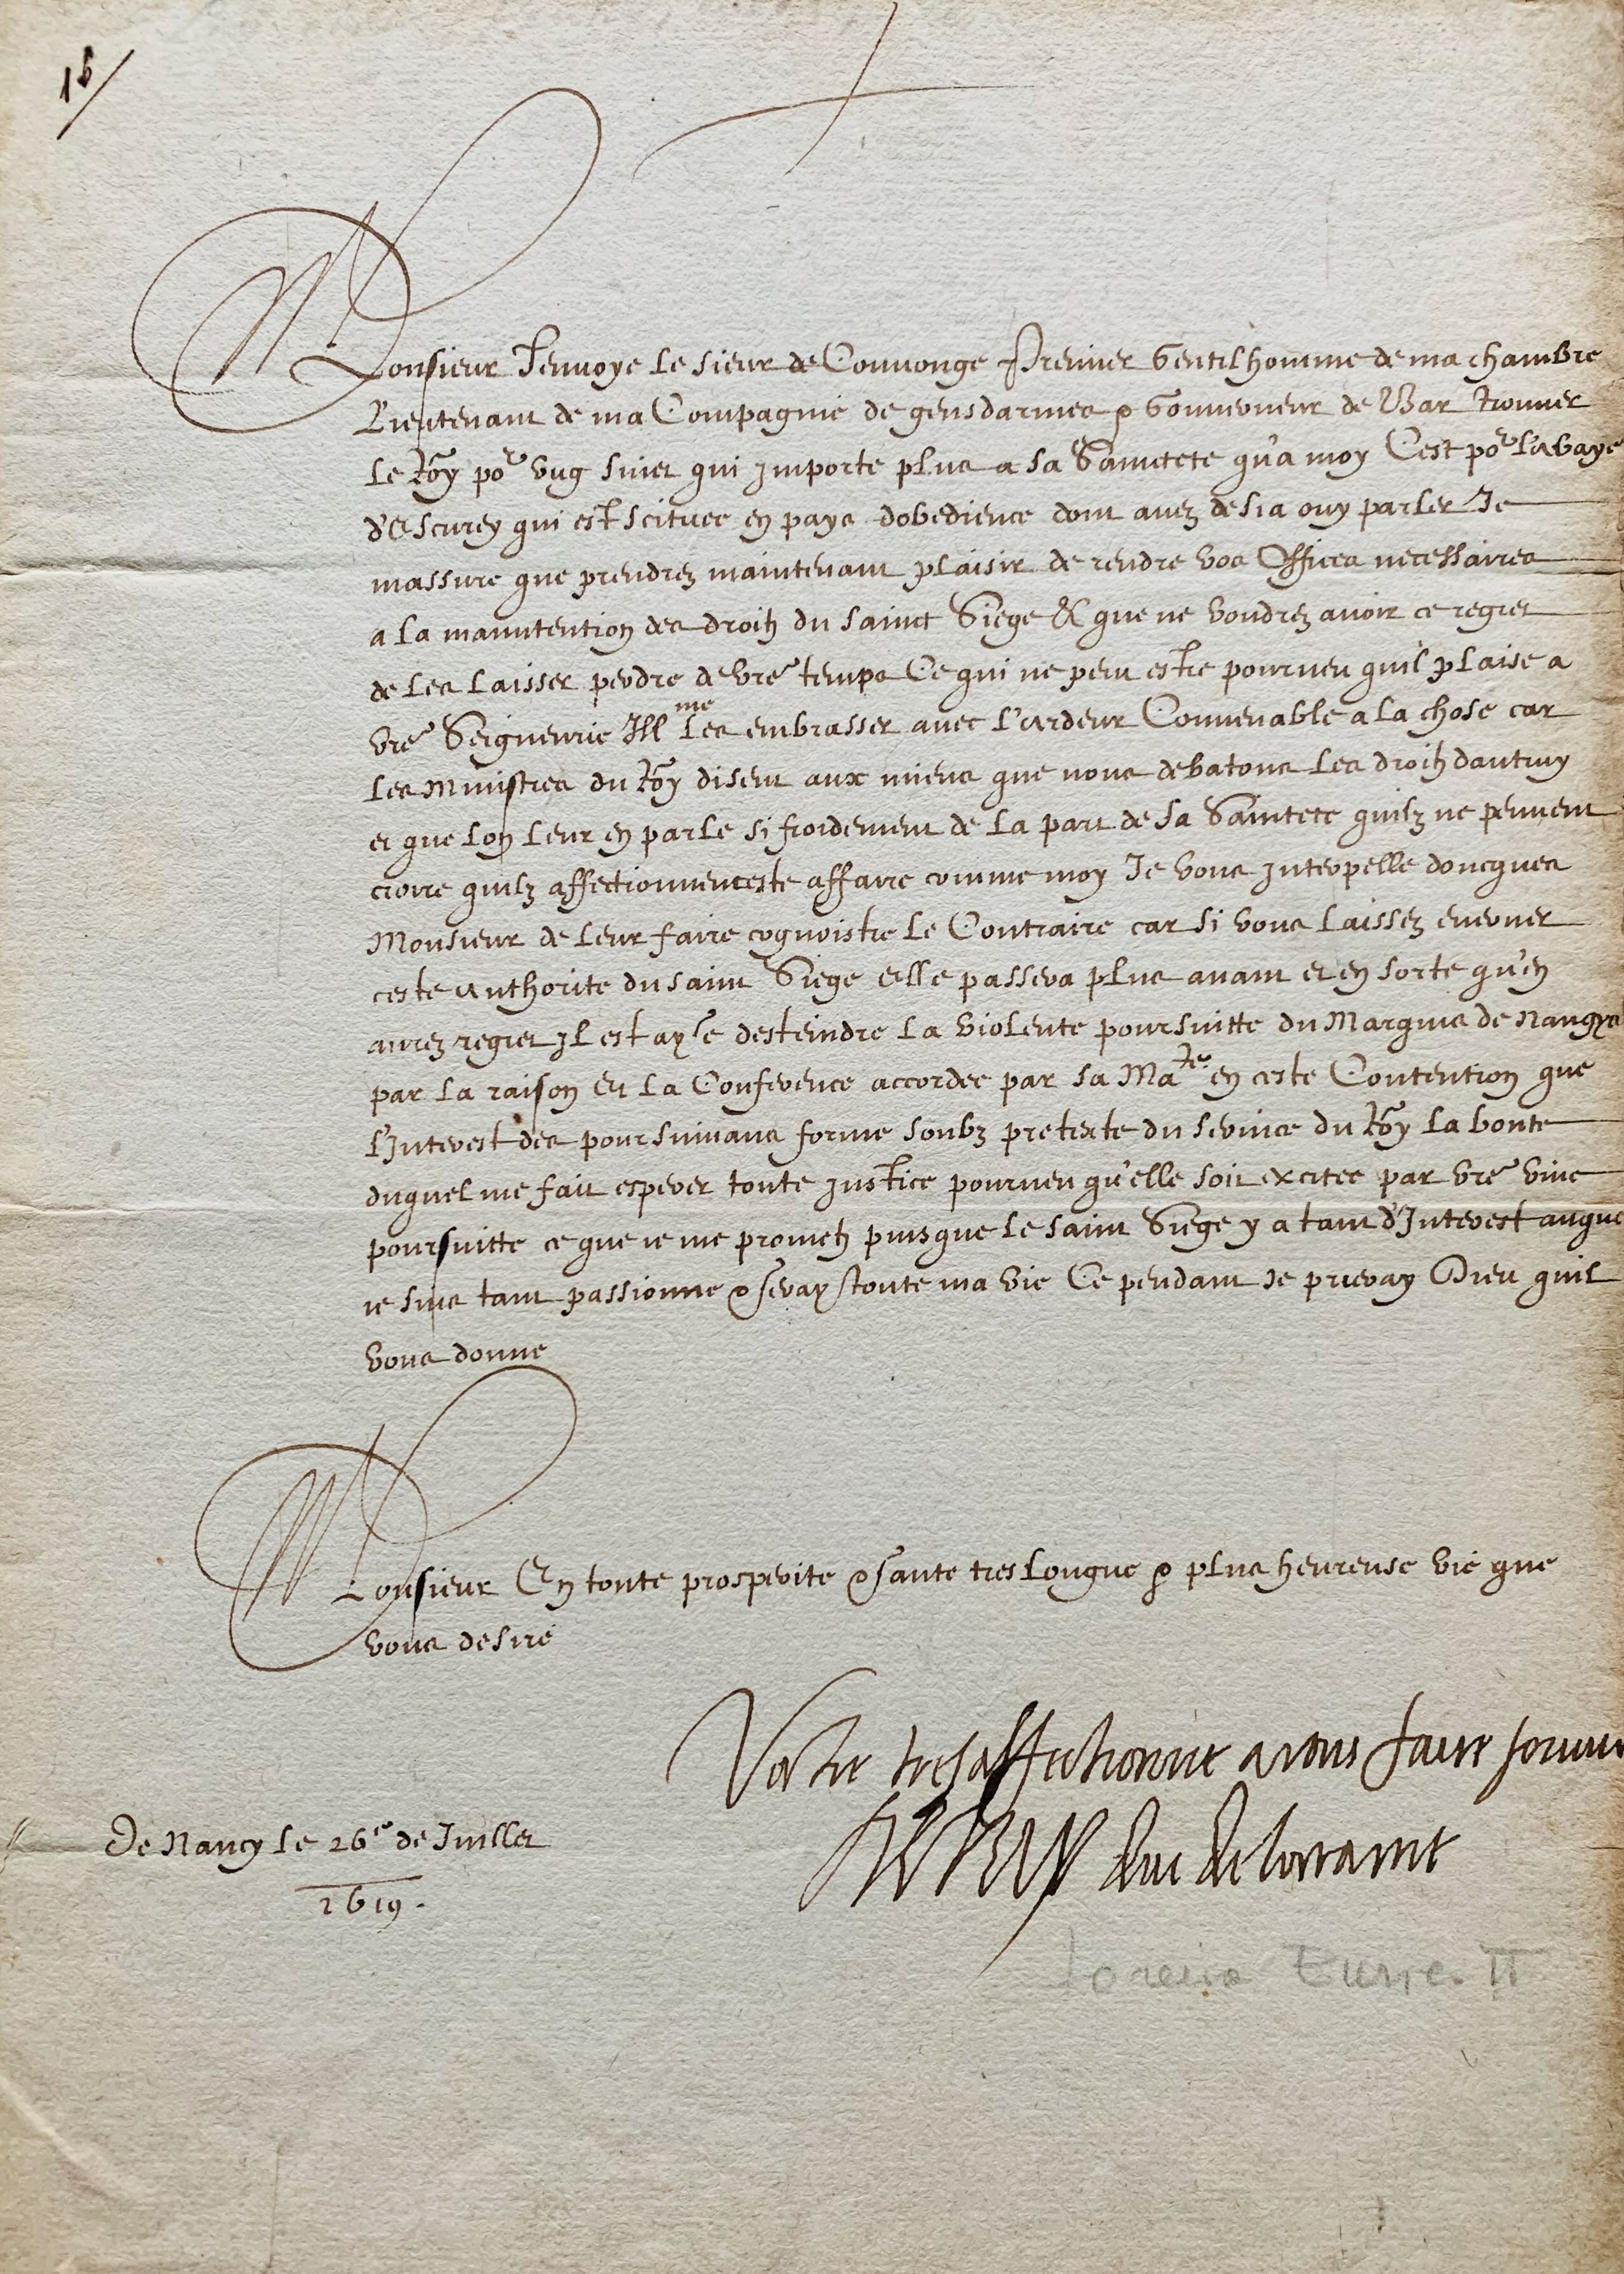 16
Monsieur J'envoye le sieur de Couuonge Premier Gentilhomme de ma chambre
Lieutenant de ma Compagnie de gensdarmes & Gouuerneur de Bar trouuer
le Roy po^r vng suiet qui importe plus a sa Sainctete qu'a moy C'est po^r l'abaye
d'Escurey qui est scituee en pays dobedience dont auez desia ouy parler Je
massure que prendrez maintenant plaisir de rendre vos Offices necessaires
a la manutention des droitz du sainct Siege & que ne voudrez auoir ce regret
de les laisser perdre de vre temps Ce qui ne peut estre pourueu quil plaise a
vre Seigneurie Ill^me les embrasser auec l'ardeur Conuenable a la chose car
les Ministres du Roy disent aux miens que nous debatons les droitz dautruy
et que lon leur en parle si froidement de la part de sa Saintete quilz ne peuuent
croire quilz affectionnent ceste affaire comme moy Je vous interpelle doncques
Monsieur de leur faire cognoistre le Contraire car si vous laissez enerver
ceste authorite du saint Siege elle passera plus auant et en sorte qu'en
aurez regret Il est aysé desteindre la violente poursuitte du Marquis de Nangys
par la raison et la Conference accordee par sa Ma^te en ceste Contention que
l'Interest des poursuiuans forme soubz pretexte du seruice du Roy la bonte
duquel me fait esperer toute iustice pourueu qu'elle soit excitee par vre viue
poursuitte ce que ie me prometz puisque le saint Siege y a tant d'Interest auquel
ie suis tant passionne & seray toute ma vie Ce pendant Je prieray Dieu quil
vous donne
Monsieur En toute prosperite & sante tres longue & plus heureuse vie que
vous desire
Vostre tresaffectionne a vous faire seruice
HENRY duc de lorraine
De Nancy le 26^e de Juillet
1619.
Lorena Enric. II